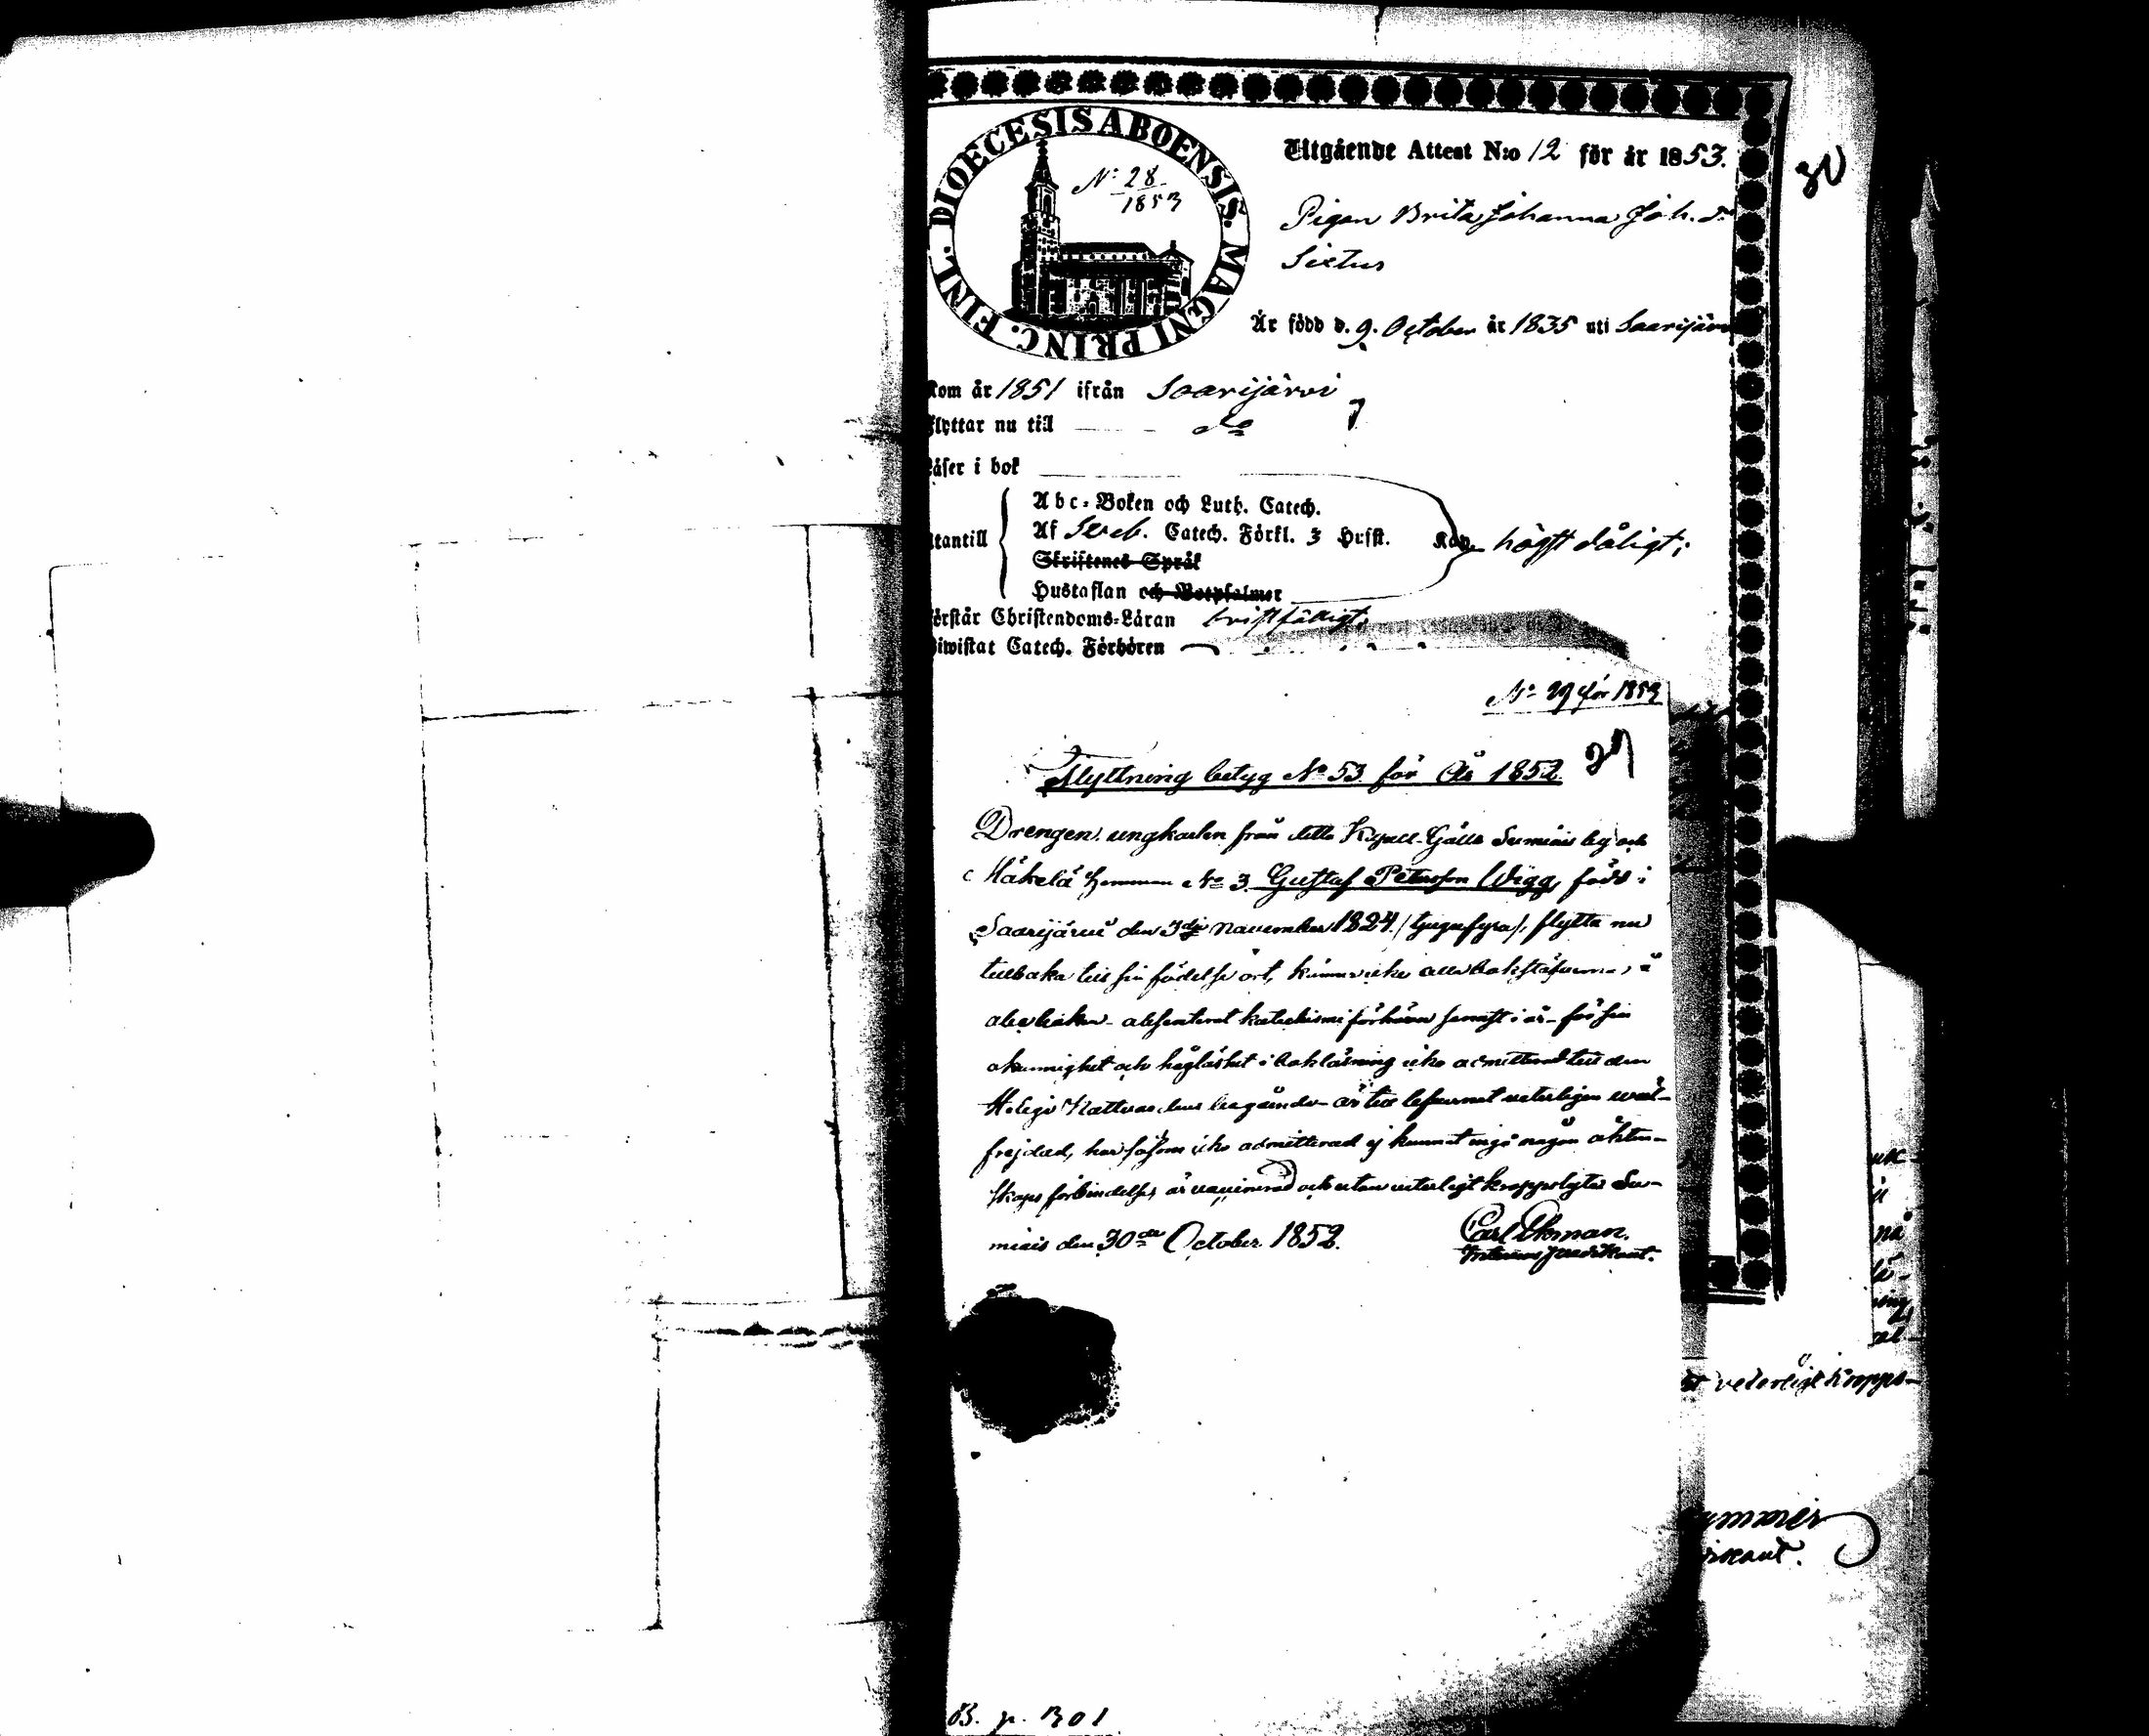 DIOECESIS ABOENSIS. MAGNI PRINC. FINL.
N:o 28
1853
Utgående Attest N:o 12 för år 1853.
30
Pigan Brita Johanna Joh. d:r
Sixtus
Är född d. 9. October år 1835 uti Saarijärvi
kom år 1851 ifrån Saarijärvi
flyttar nu till d:o
läser i bok
Abc-Boken och Luth. Catech.
utantill Af Sveb. Catech. Förkl. 3 Hufst. högst dåligt;
Skriftenes Språk
Hustaflan och Botpsalmer
förstår Christendoms-Läran bristfälligt;
biwistat Catech. Förhören
N:o 29 för 1853
Flyttning betyg N:o 53 för År 1852.
29
Drengen ungkarlen från detta Kapell-Gälls Sumiais by och
Mäkelä hemman N:o 3 Gustaf Petersson Wigg, född i
Saarijärvi den 3dje November 1824 /tjugufyra/, flytta nu
tillbaka till sin födelse ort, känner icke alla bokstäfverna, i
abc boken - absenterat katechismi förhören senast i år - för sin
okunnighet och håglöshet i bokläsning icke admitterad till den
Heliga Nattvardens begående - är till lefvernet veterligen wäl-
frejdad, har såsom icke admitterad ej kunnat ingå någon äkten-
skaps förbindelse, är vaccinerad och utan veterligt kroppslyte. Su-
miais den 30de October 1852.
Carl Ekman.
veterligt kropps-
B. p. 301